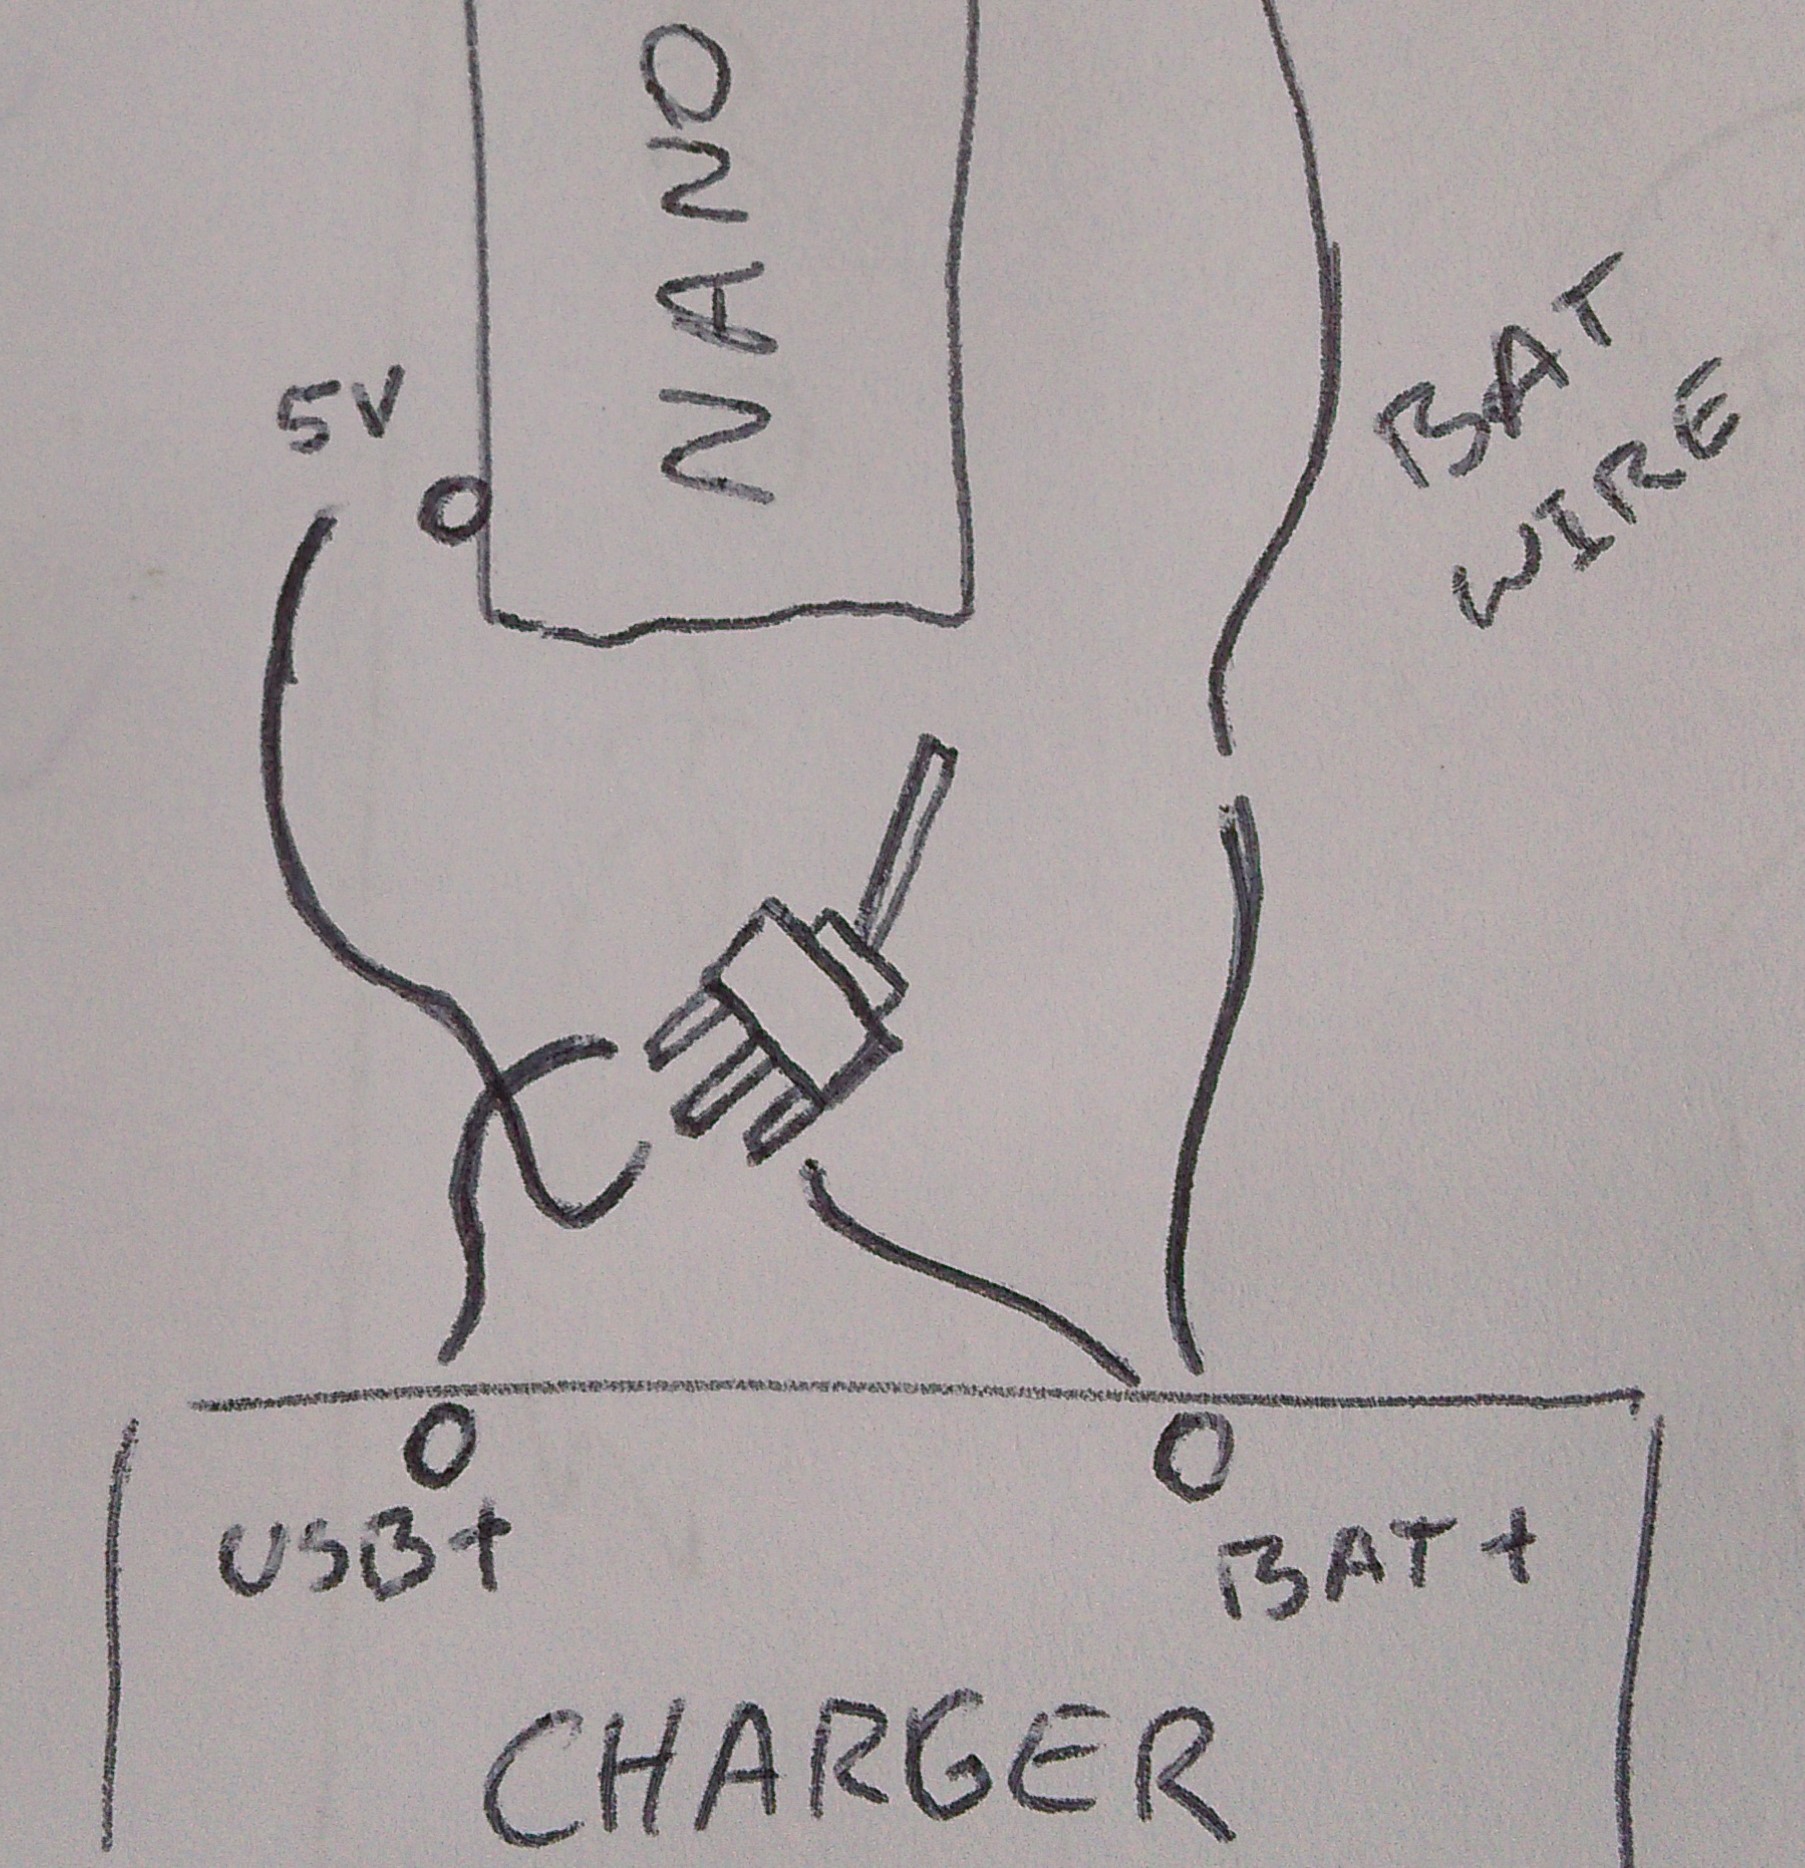 NANO
5V
BAT
WIRE
USB+
BAT+
CHARGER